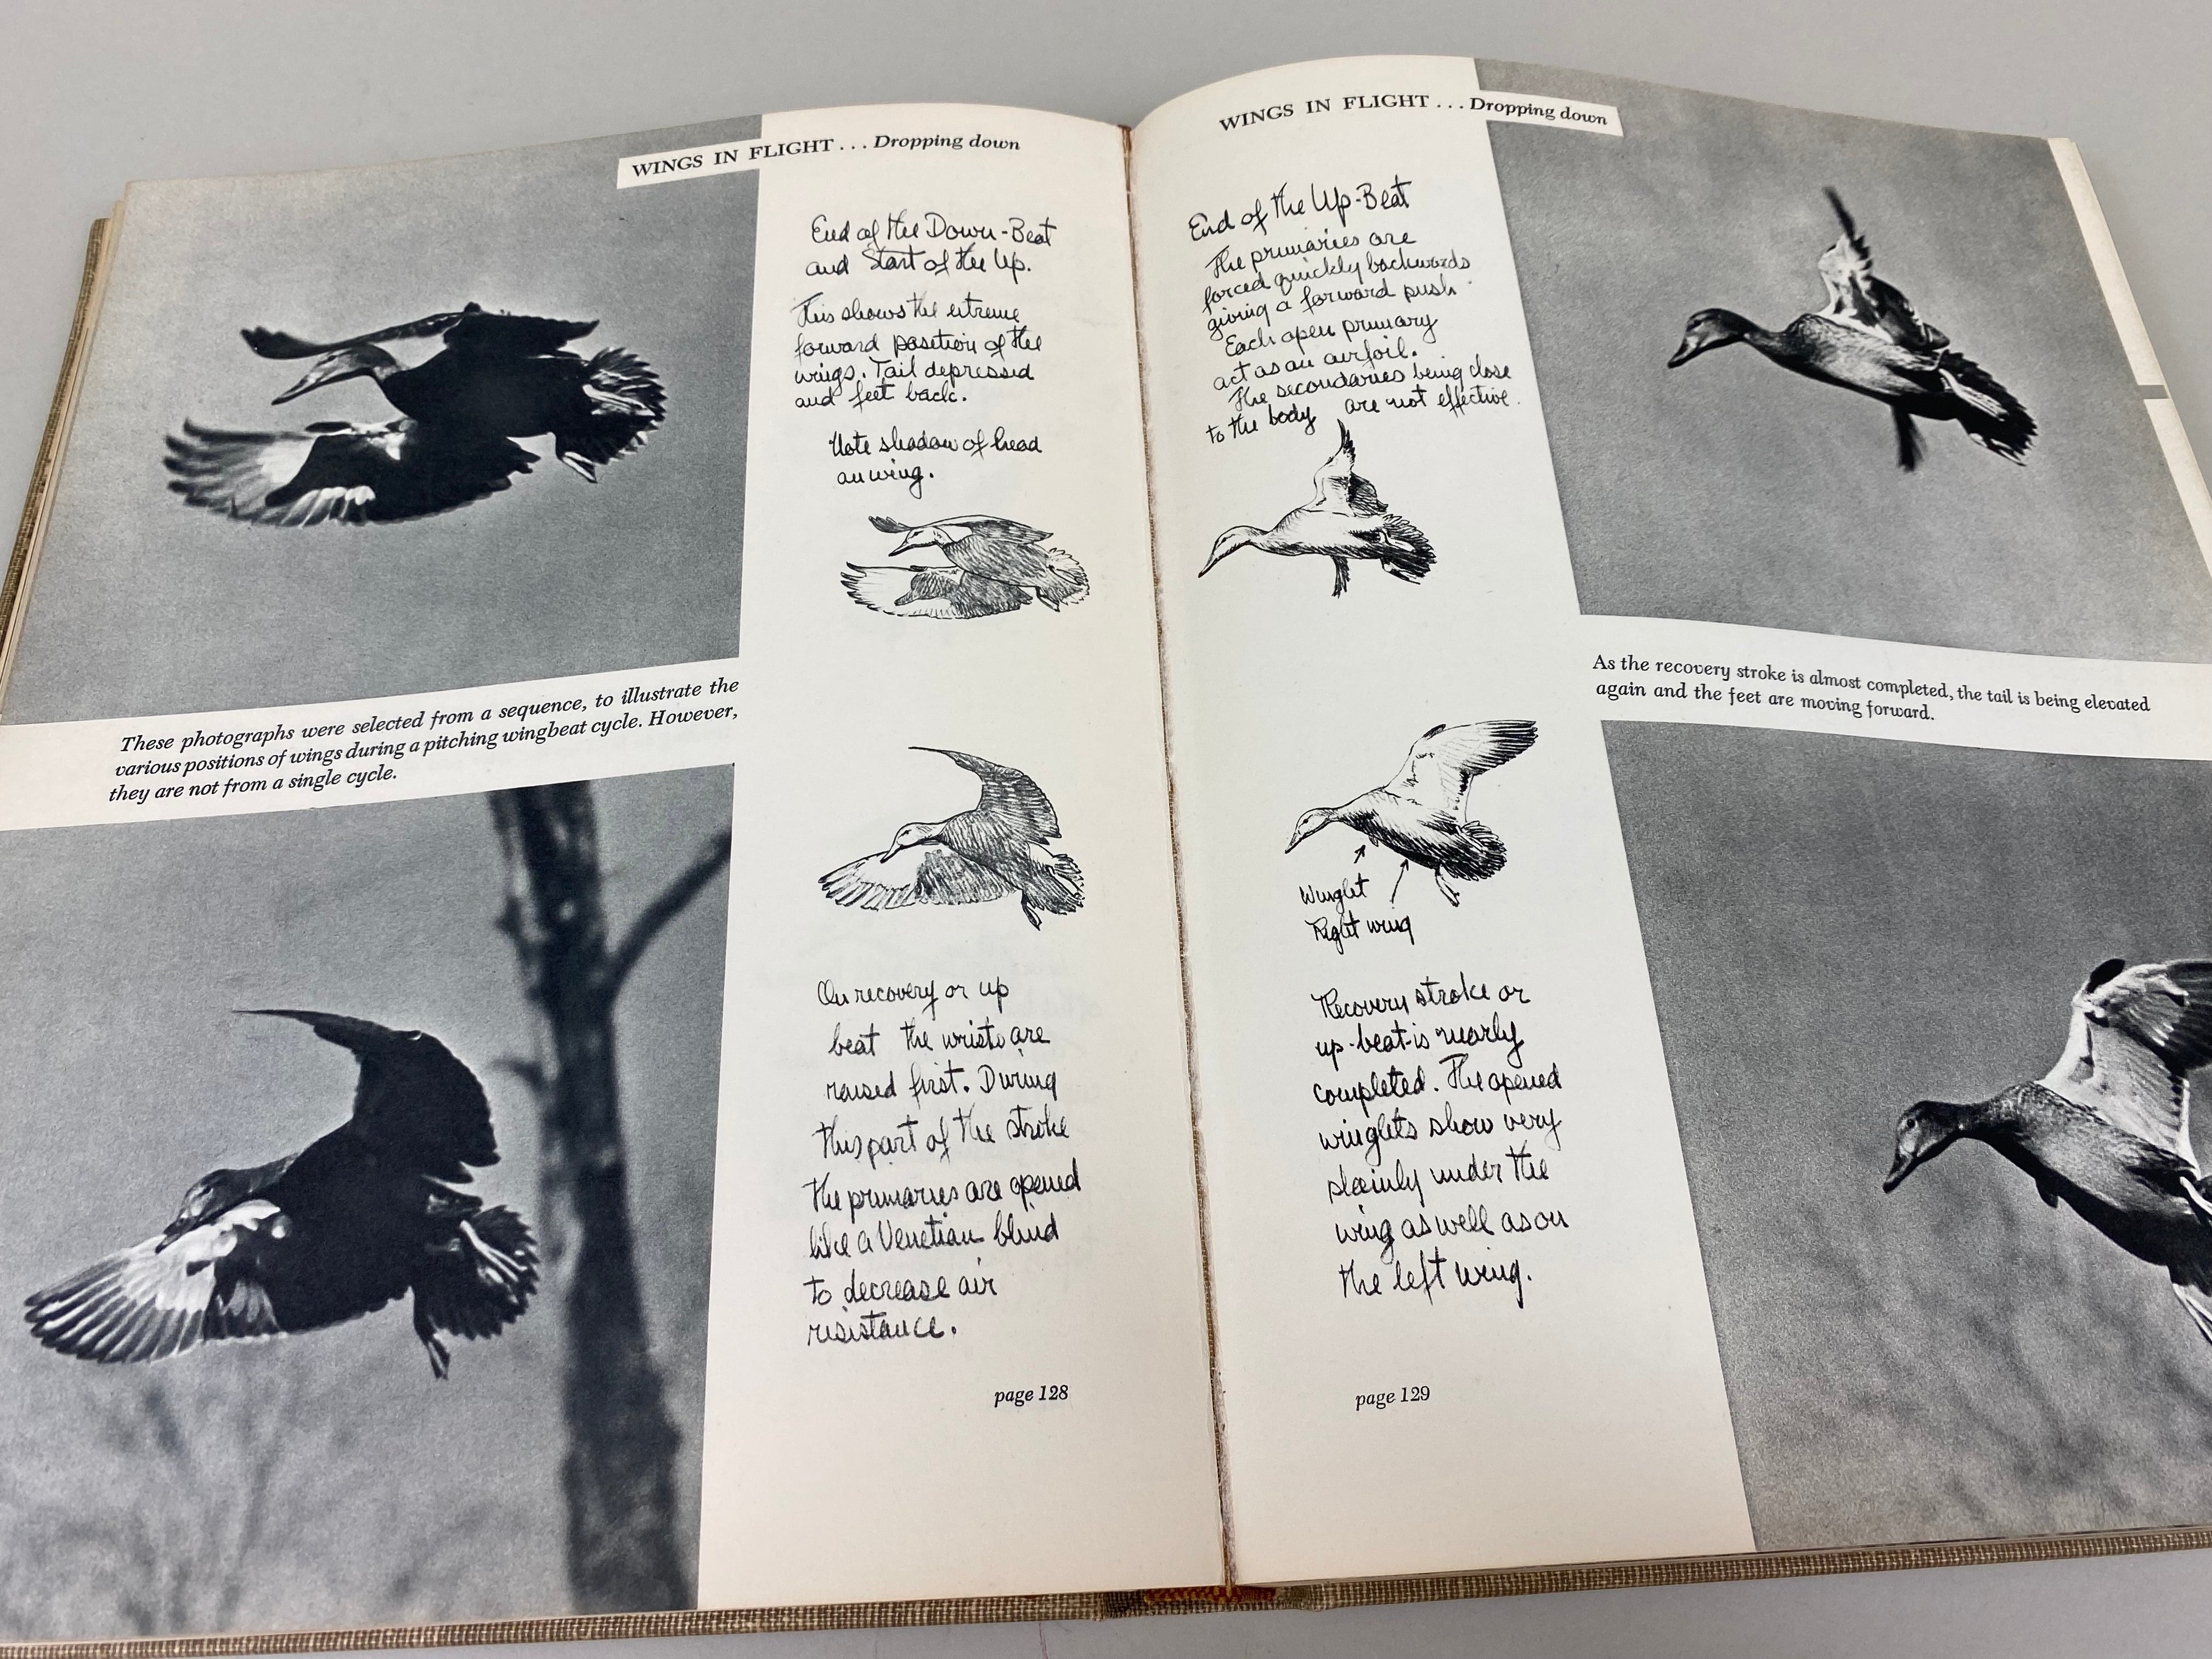 WINGS IN FLIGHT . . . Dropping down
End of the Down-Beat
and Start of the Up.
This shows the extreme
forward position of the
wings. Tail depressed
and feet back.
Note shadow of head
on wing.
These photographs were selected from a sequence, to illustrate the
various positions of wings during a pitching wingbeat cycle. However,
they are not from a single cycle.
On recovery or up
beat the wrists are
raised first. During
this part of the stroke
the primaries are opened
like a Venetian blind
to decrease air
resistance.
page 128
WINGS IN FLIGHT . . . Dropping down
End of the Up-Beat
The primaries are
forced quickly backwards
giving a forward push.
Each open primary
act as an airfoil.
The secondaries being close
to the body are not effective.
As the recovery stroke is almost completed, the tail is being elevated
again and the feet are moving forward.
Winglet
Right wing
Recovery stroke or
up-beat-is nearly
completed. The opened
winglets show very
plainly under the
wing as well as on
the left wing.
page 129